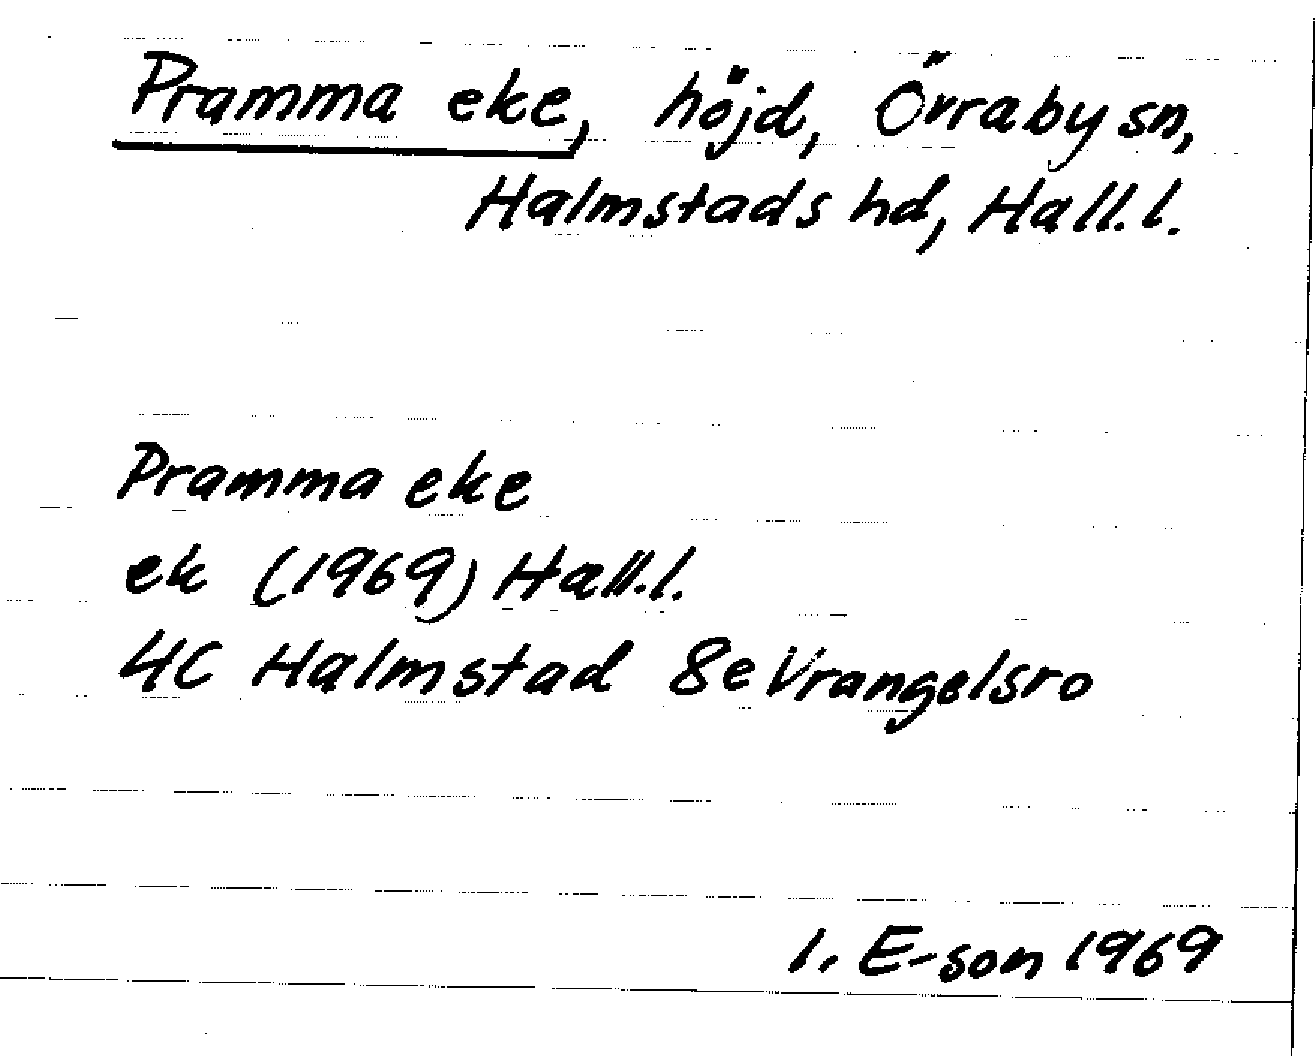 Pramma eke, höjd, Övraby sn,
Halmstads hd, Hall.l.
Pramma eke
ek (1969) Hall.l.
4C Halmstad 8e Vrangelsro
I. E-son 1969